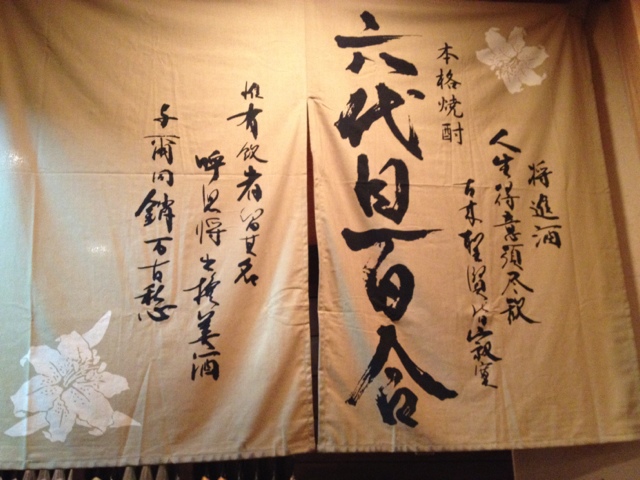 将進酒
人生得意須尽歡
古来聖賢皆寂寞
本格焼酎
六代目百合
惟有飲者留其名
呼児将出換美酒
与爾同銷万古愁